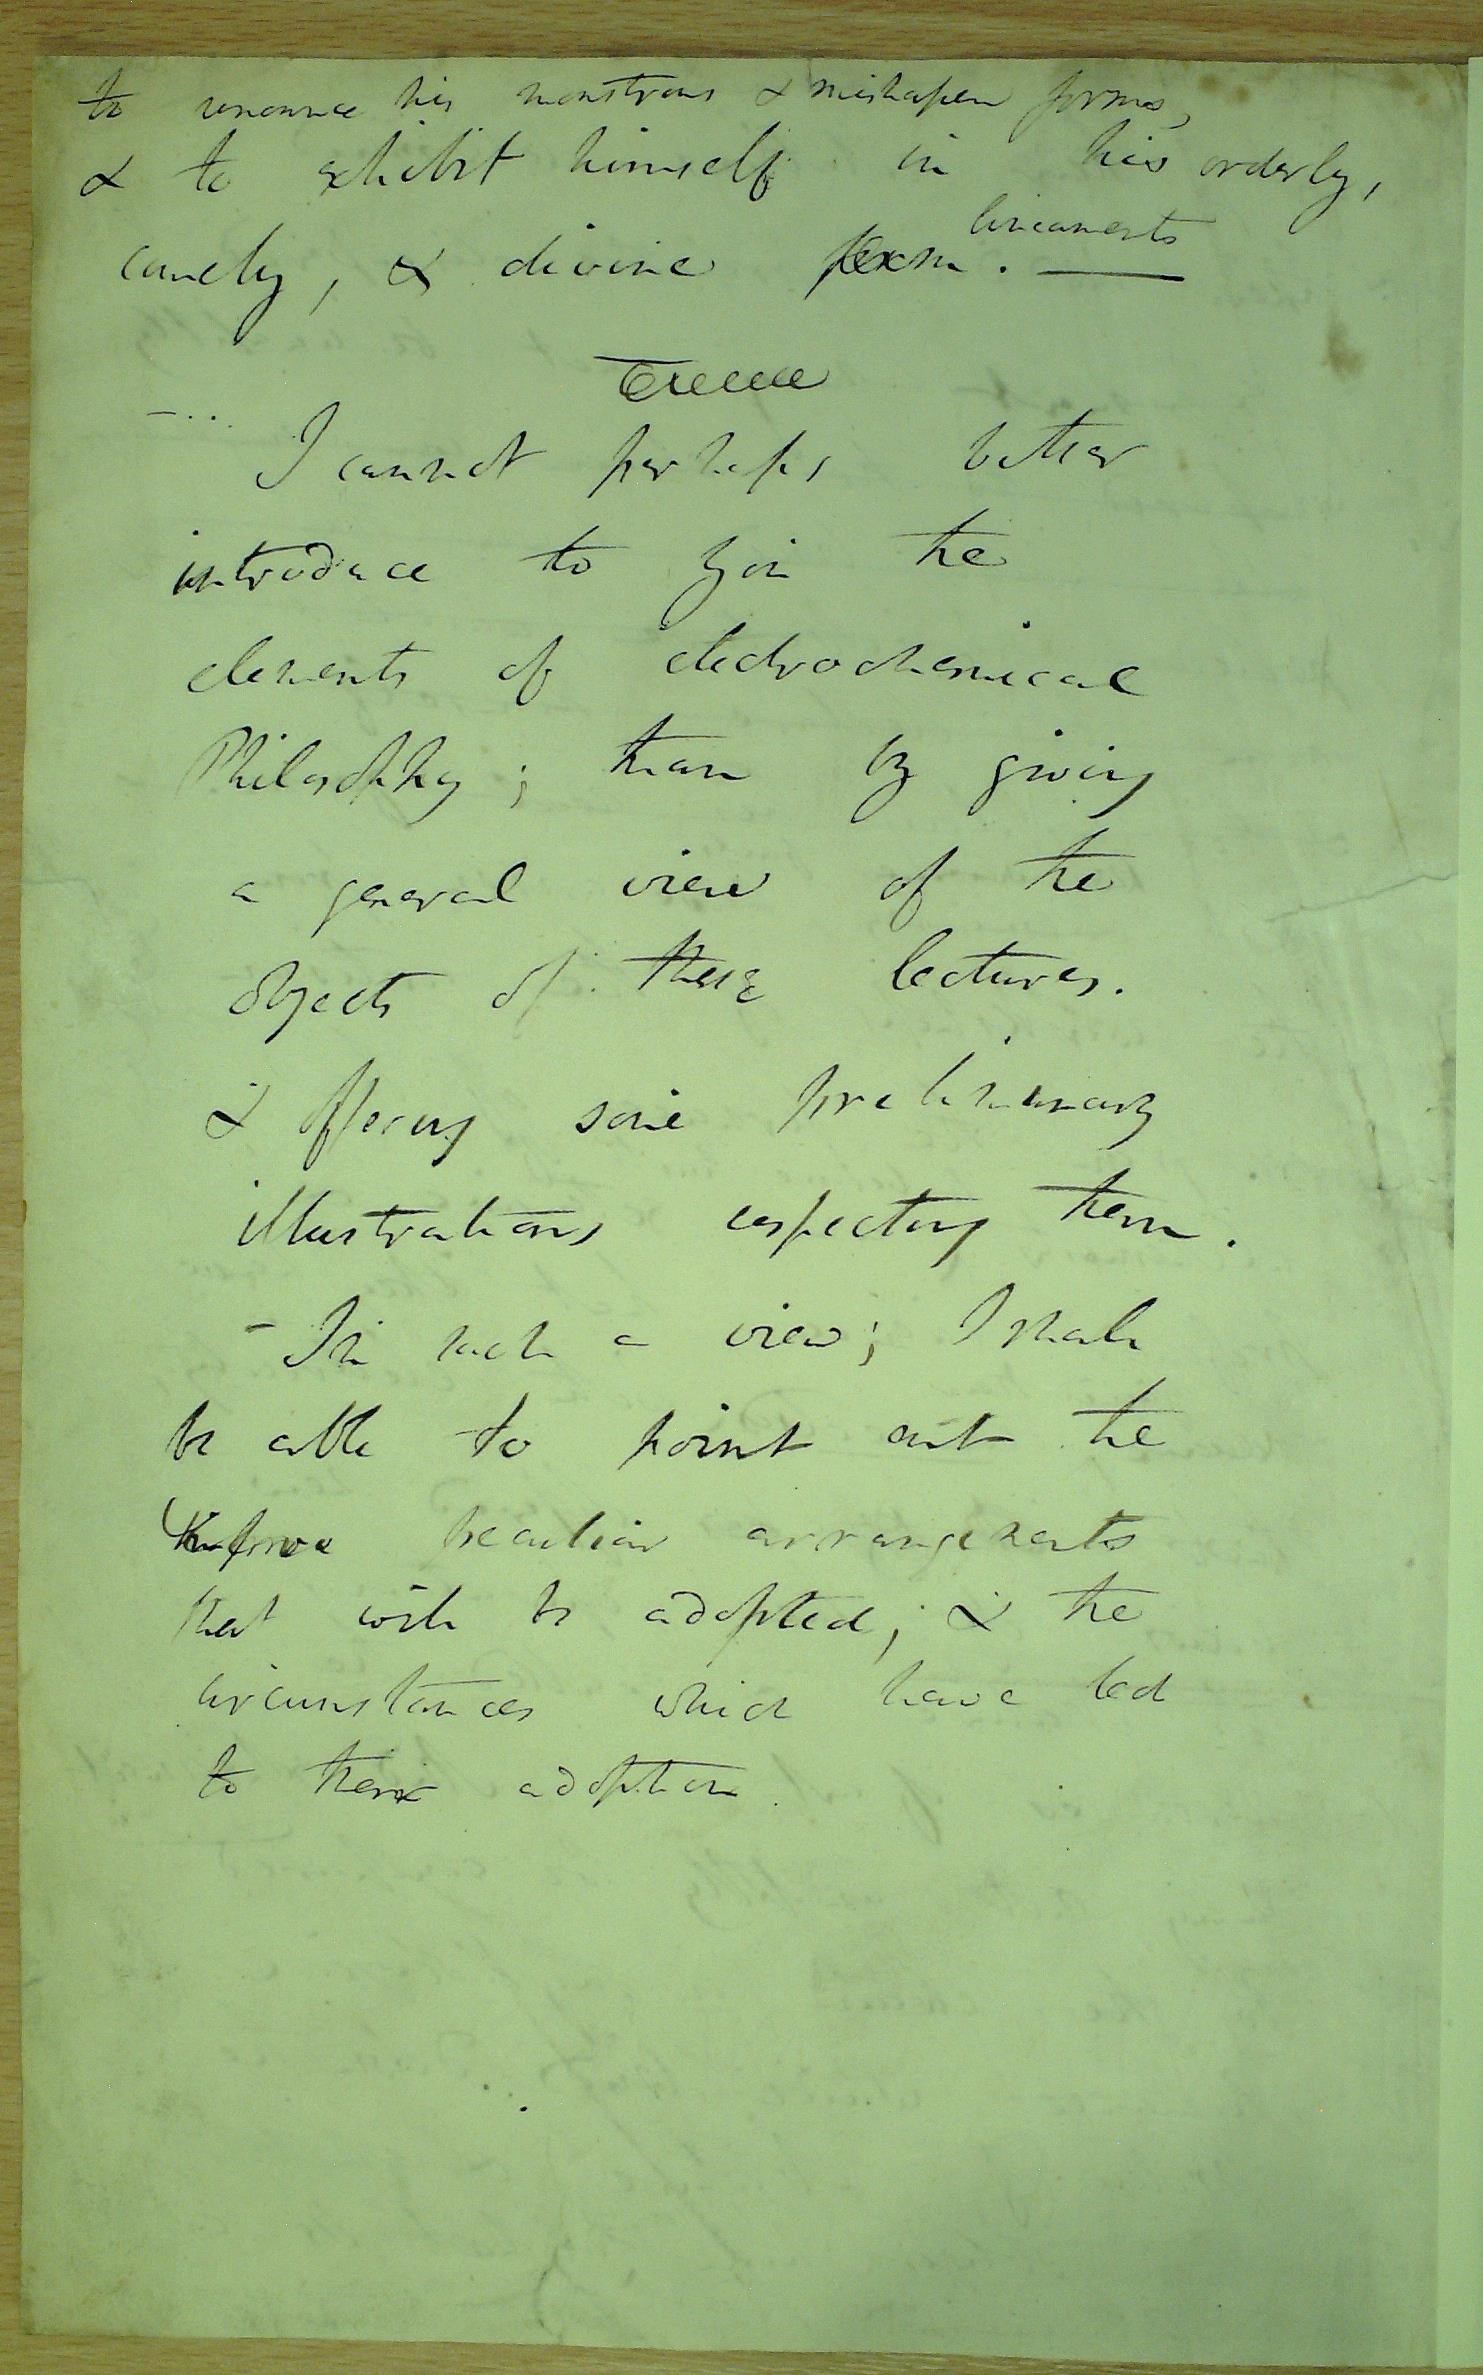 to renounce his monstrous & mishapen forms,
& to exhibit himself in his orderly,
lineaments
comely, & divine form. —
- ..
I cannot perhaps better
introduce to you the
elements of electrochemical
Philosophy; than by giving
a general view of the
objects of these lectures.
& offering some preliminary
illustrations respecting them.
- In such a view; I shall
be able to point out the
peculiar arrangements
that will be adopted; & the
circumstances which have led
to their adoption.